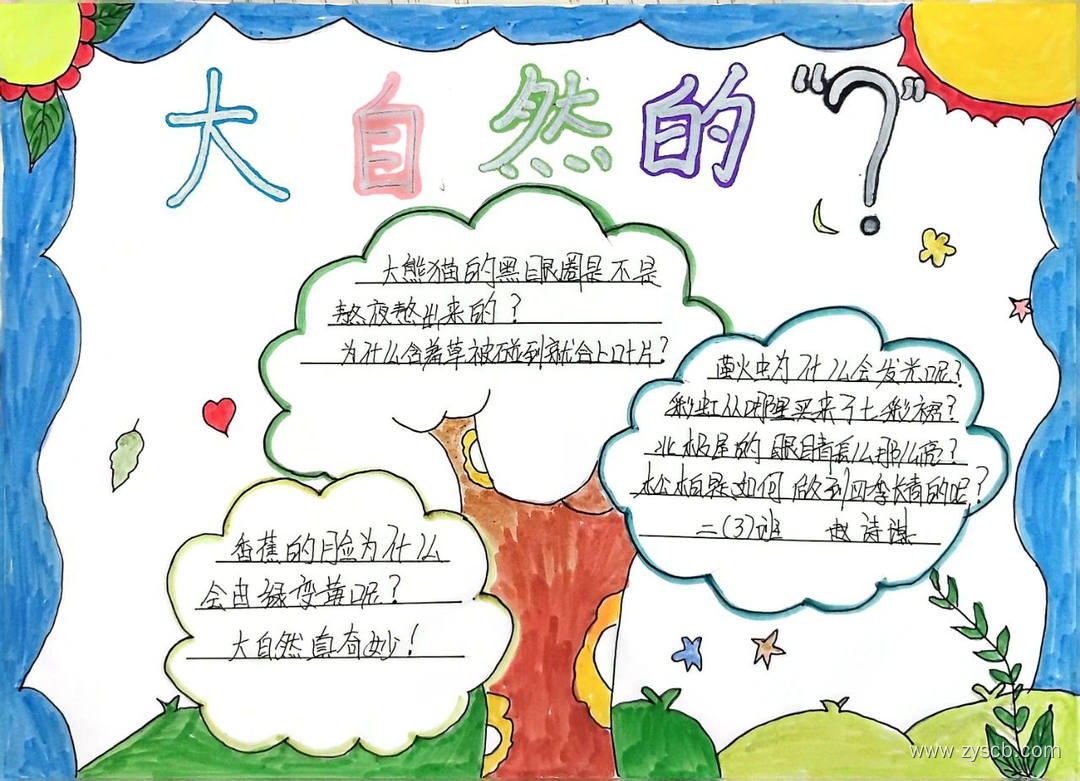 大自然的“?”
大熊猫的黑眼圈是不是
熬夜熬出来的？
为什么含羞草被碰到就合上叶片？
萤火虫为什么会发光呢？
彩虹从哪里买来了七彩裙？
北极星的眼睛怎么那么亮？
松柏是如何做到四季长青的呢？
二(3)班 赵诗淇
香蕉的脸为什么
会由绿变黄呢？
大自然真奇妙！
www.zyscb.com